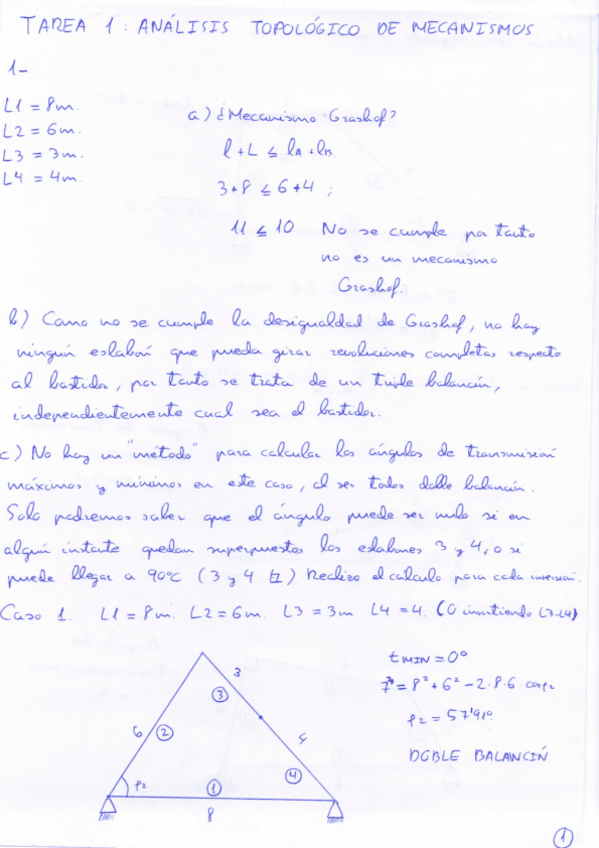 TAREA 1: ANÁLISIS TOPOLÓGICO DE MECANISMOS
1-
L1 = 8m.
L2 = 6m.
L3 = 3m.
L4 = 4m.
a) ¿Mecanismo Grashof?
l + L ≤ lA + lB
3+8 ≤ 6+4 ;
11 ≤ 10 No se cumple por tanto
no es un mecanismo
Grashof.
b) Como no se cumple la desigualdad de Grashof, no hay
ningún eslabón que pueda girar revoluciones completas respecto
al bastidor, por tanto se trata de un triple balancín,
independientemente cual sea el bastidor.
c) No hay un "método" para calcular los ángulos de transmisión
máximos y mínimos en este caso, al ser todos doble balancín.
Solo podremos saber que el ángulo puede ser nulo si en
algún instante quedan superpuestos los eslabones 3 y 4, o si
puede llegar a 90ºC (3 y 4 ). Realizo el calculo para cada inversión.
Caso 1. L1 = 8m. L2 = 6m. L3 = 3m L4 = 4. (O invirtiendo L3-L4)
tMIN = 0º
7² = 8² + 6² - 2·8·6 cosφ2
φ2 = 57'91º
DOBLE BALANCIÑ
3
3
6
2
4
4
φ2
1
8
1